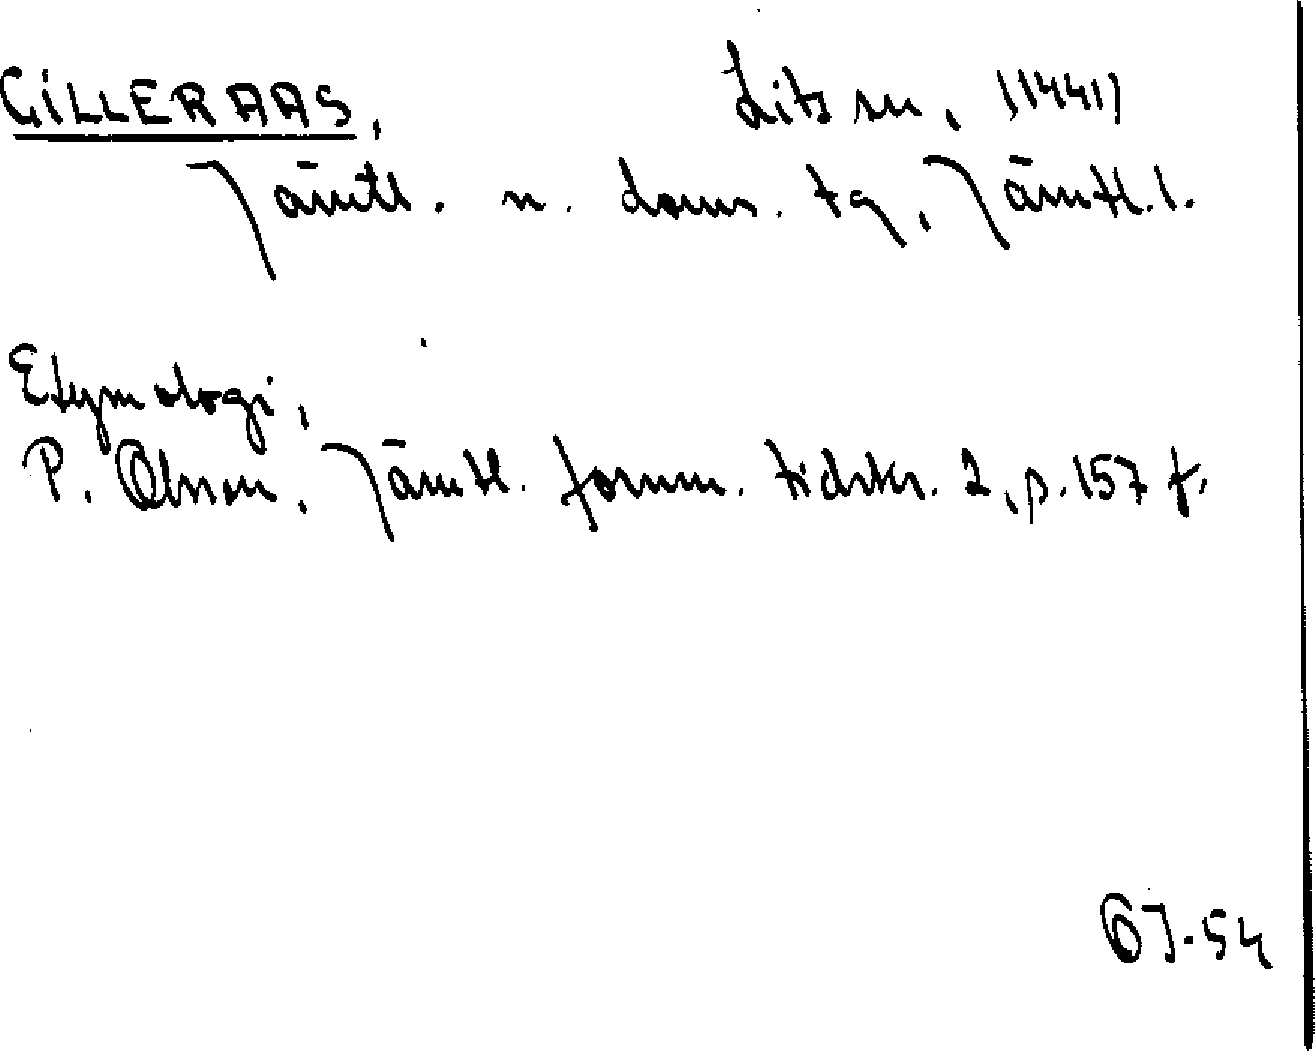 GILLERAAS, Lits sn, (1441)
Jämtl. n. doms. tg, Jämtl. l.
Etymologi,
P. Olsson, Jämtl. fornm. tidskr. 2, p. 157 f.
OJ-54